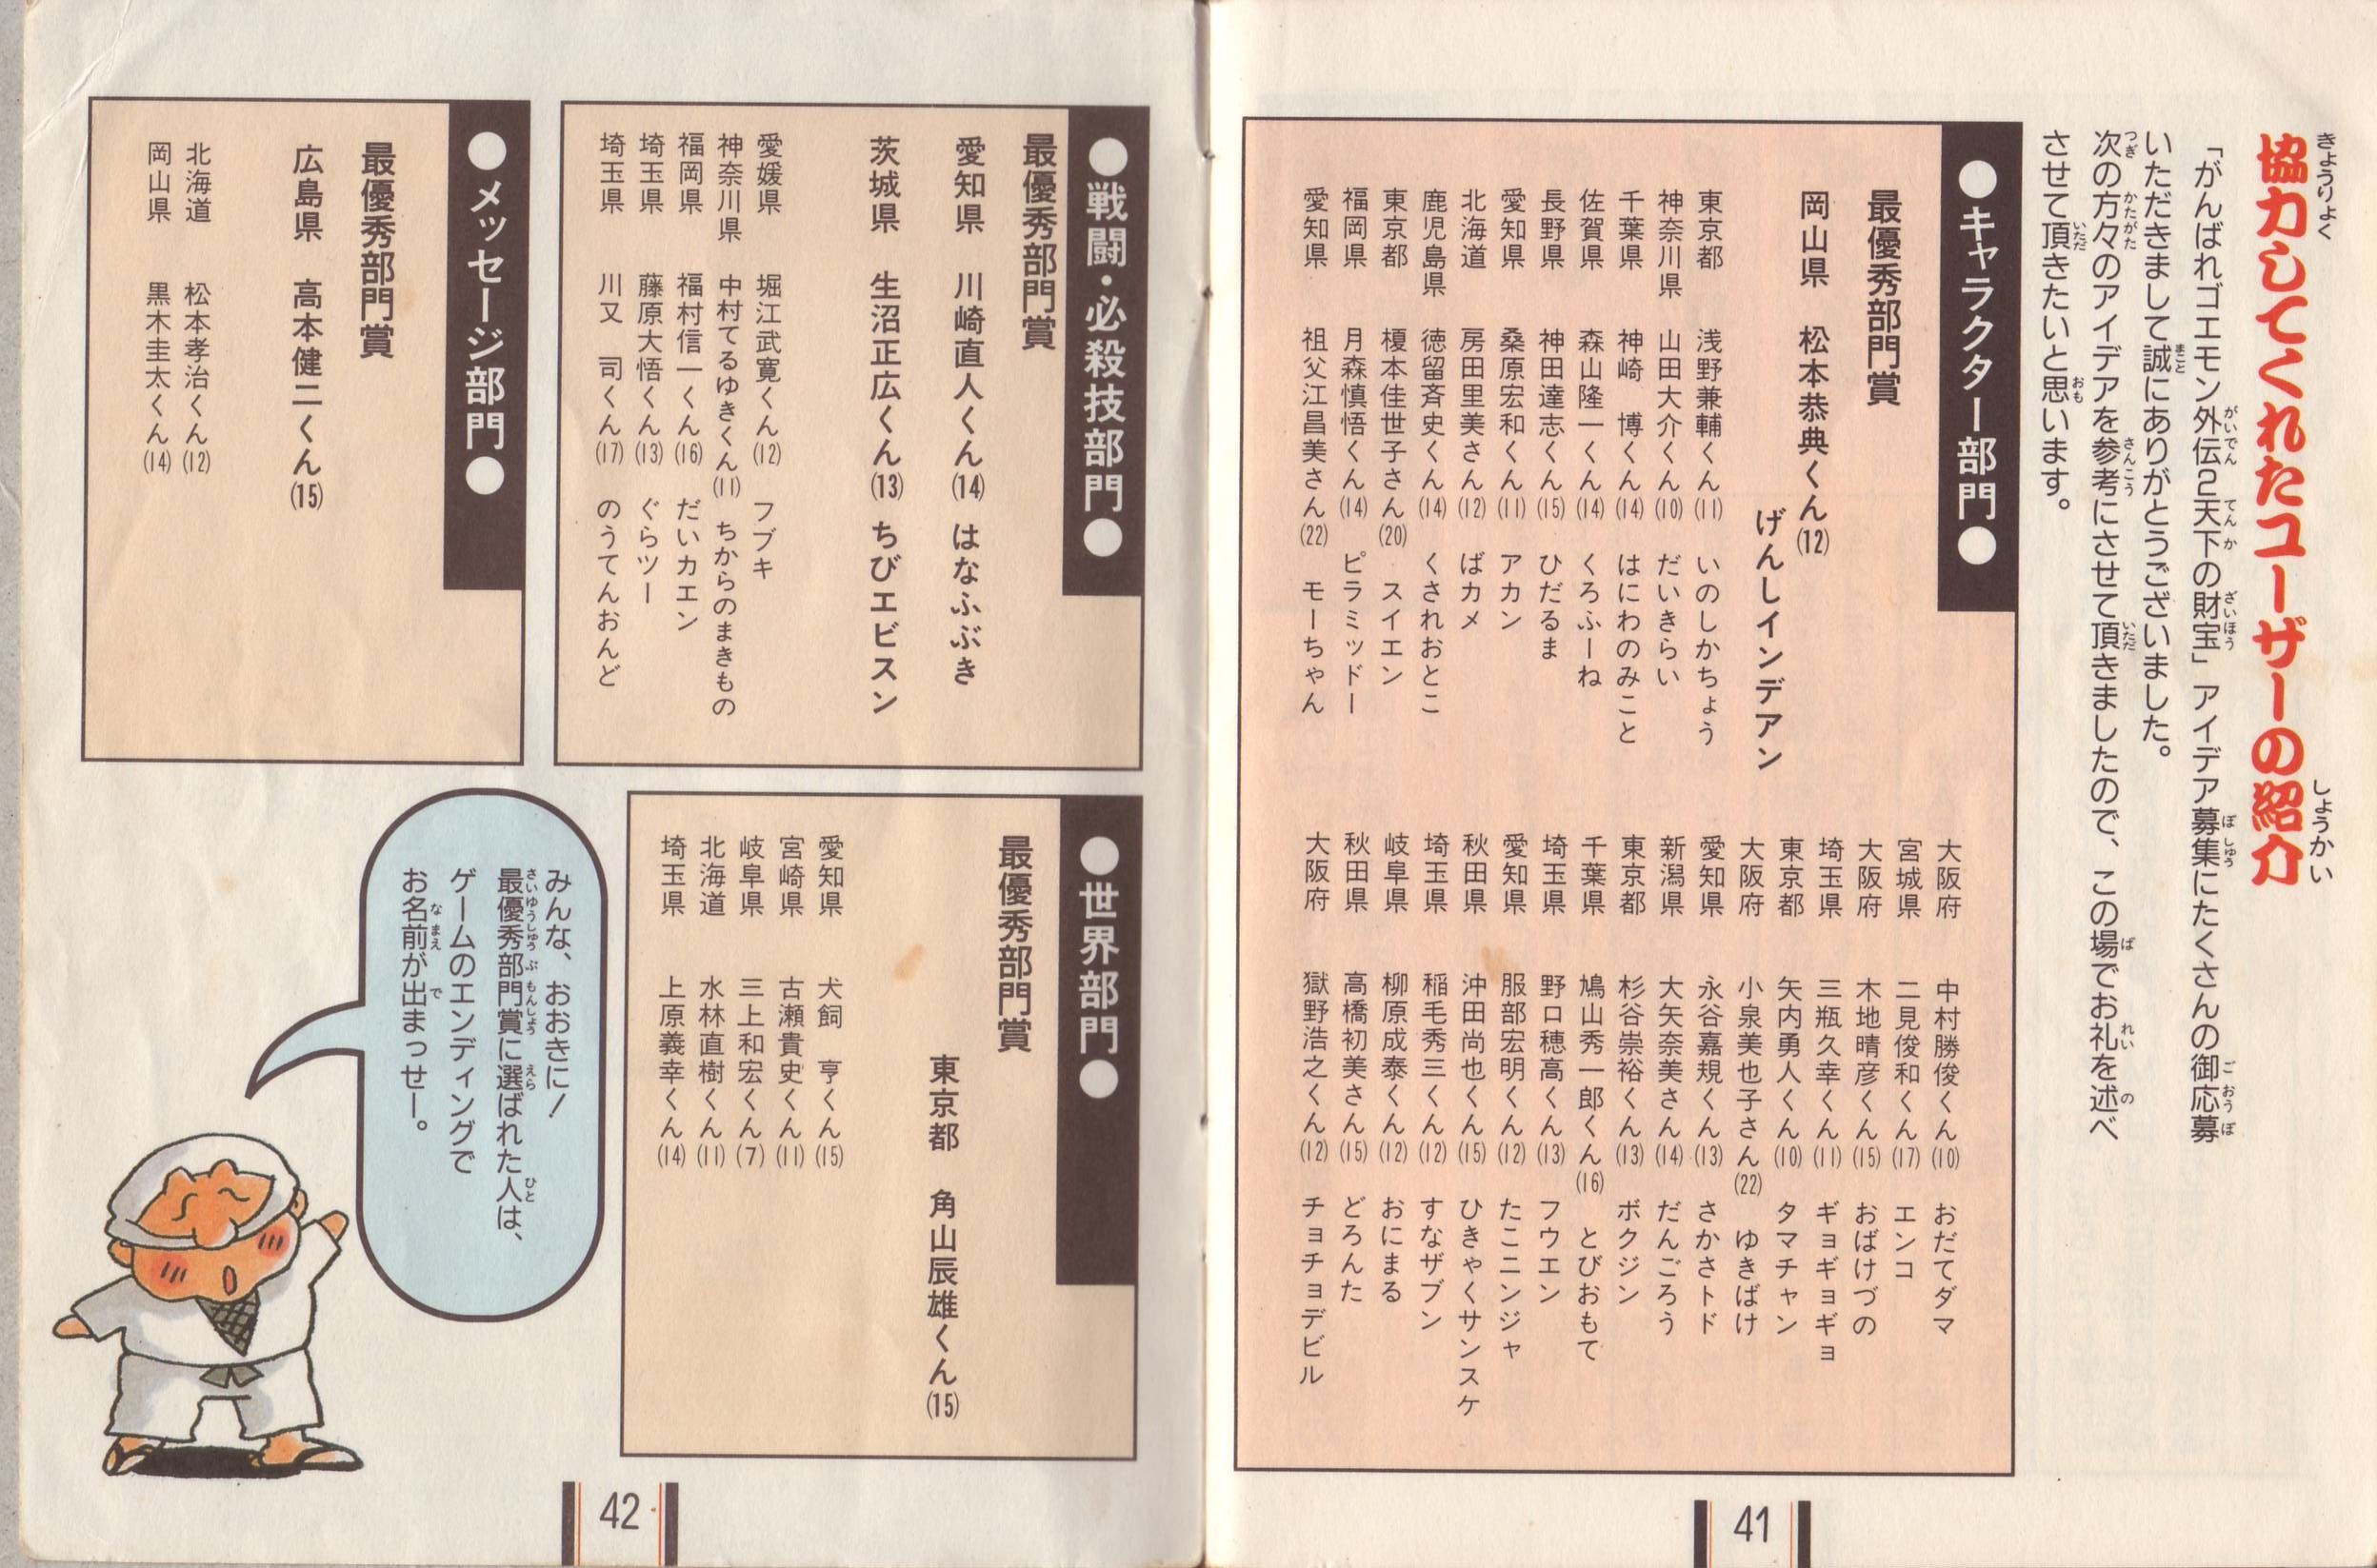 協力してくれたユーザーの紹介
「がんばれゴエモン外伝2天下の財宝」アイデア募集にたくさんの御応募
いただきまして誠にありがとうございました。
次の方々のアイデアを参考にさせて頂きましたので、この場でお礼を述べ
させて頂きたいと思います。
●キャラクター部門●
最優秀部門賞
岡山県 松本恭典くん(12)
げんしインデアン
東京都 浅野兼輔くん(11) いのしかちょう
神奈川県 山田大介くん(10) だいきらい
千葉県 神崎 博くん(14) はにわのみこと
佐賀県 森山隆一くん(14) くろふーね
長野県 神田達志くん(15) ひだるま
愛知県 桑原宏和くん(11) アカン
北海道 房田里美さん(12) ばカメ
鹿児島県 徳留斉史くん(14) くされおとこ
東京都 榎本佳世子さん(20) スイエン
福岡県 月森慎悟くん(14) ピラミッドー
愛知県 祖父江昌美さん(22) モーちゃん
大阪府 中村勝俊くん(10) おだてダマ
宮城県 二見俊和くん(17) エンコ
大阪府 木地晴彦くん(15) おばけづの
埼玉県 三瓶久幸くん(11) ギョギョギョ
東京都 矢内勇人くん(10) タマチャン
大阪府 小泉美也子さん(22) ゆきばけ
愛知県 永谷嘉規くん(13) さかさトド
新潟県 大矢奈美さん(14) だんごろう
東京都 杉谷崇裕くん(13) ボクジン
千葉県 鳩山秀一郎くん(16) とびおもて
埼玉県 野口穂高くん(13) フウエン
愛知県 服部宏明くん(12) たこニンジャ
秋田県 沖田尚也くん(15) ひきゃくサンスケ
埼玉県 稲毛秀三くん(12) すなザブン
岐阜県 柳原成泰くん(12) おにまる
秋田県 高橋初美さん(15) どろんた
大阪府 獄野浩之くん(12) チョチョデビル
41
●戦闘・必殺技部門●
最優秀部門賞
愛知県 川崎直人くん(14) はなふぶき
茨城県 生沼正広くん(13) ちびエビスン
愛媛県 堀江武寛くん(12) フブキ
神奈川県 中村てるゆきくん(11) ちからのまきもの
福岡県 福村信一くん(16) だいカエン
埼玉県 藤原大悟くん(13) ぐらツー
埼玉県 川又 司くん(17) のうてんおんど
●メッセージ部門●
最優秀部門賞
広島県 高本健二くん(15)
北海道 松本孝治くん(12)
岡山県 黒木圭太くん(14)
●世界部門●
最優秀部門賞
東京都 角山辰雄くん(15)
愛知県 犬飼 亨くん(15)
宮崎県 古瀬貴史くん(11)
岐阜県 三上和宏くん(7)
北海道 水林直樹くん(11)
埼玉県 上原義幸くん(14)
みんな、おおきに!
最優秀部門賞に選ばれた人は、
ゲームのエンディングで
お名前が出まっせー。
42